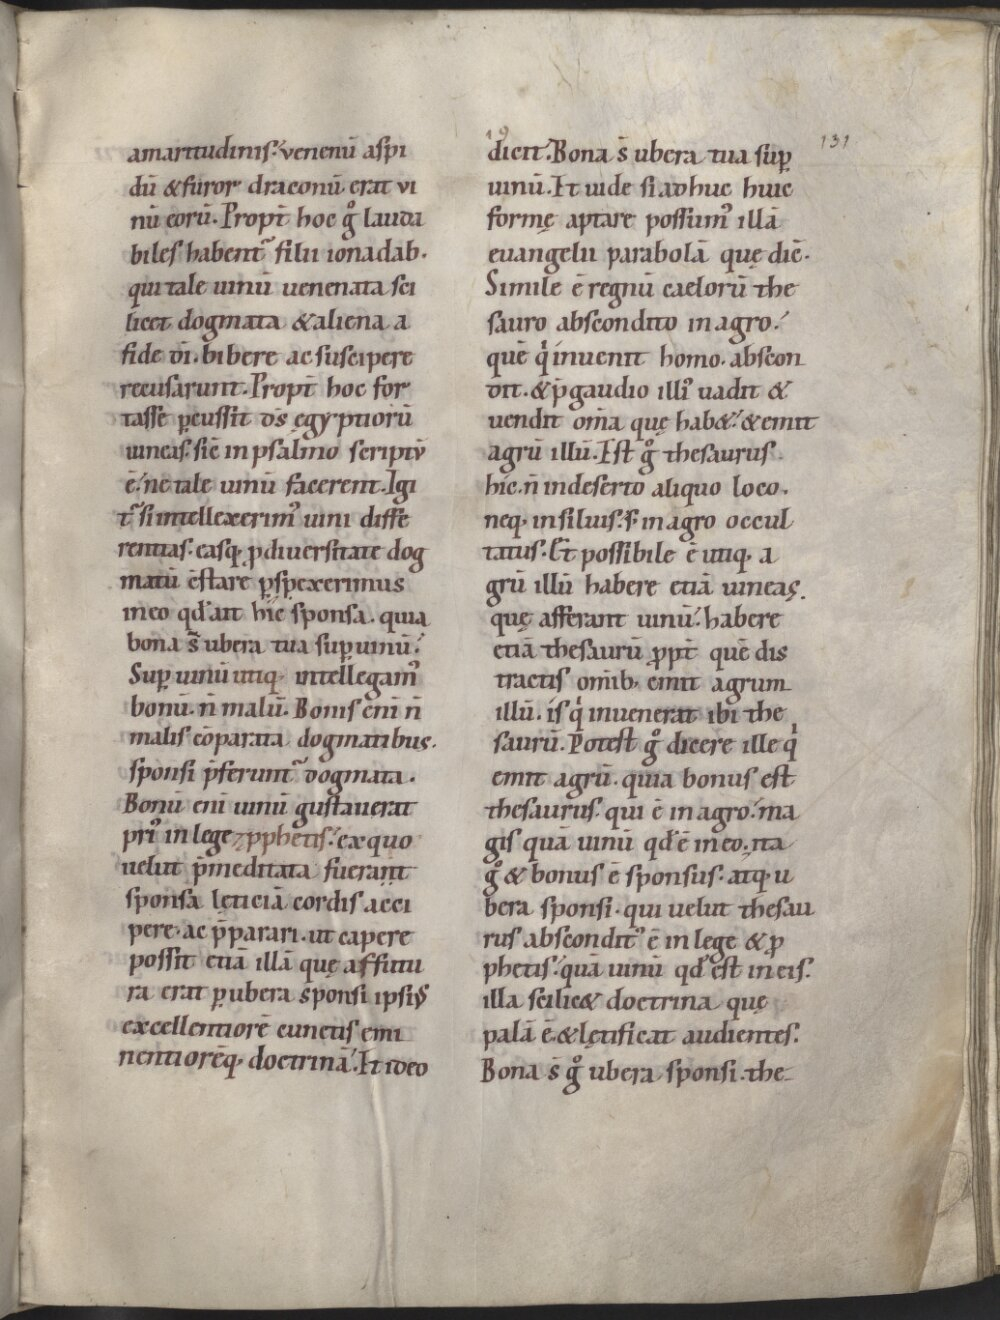 amaritudinis. venenū aspi
dū & furor draconū erat vi
nū eorū. Propt̄ hoc g̊ lauda
biles habent᷑ filii ionadab.
qui tale uinū uenenata sci
licet dogmata & aliena a
fide dī. bibere ac suscipere
recusarunt. Propt̄ hoc for
tasse p̱cussit dс̄ ęgyptiorū
uineas. sic̄ in psalmo scriptū
ē. ne tale uinū facerent. Igi
t᷑ si intellexerimꝰ uini diffe
rentias. easq; ꝓ diuersitate dog
matū c̄stare ꝑspexerimus
in eo qd̄ ait hic sponsa. quia
bona s̄ ubera tua suꝑ uinū.
Suꝑ uinū utiq; intellegamꝰ
bonū. n̄ malū. Bonis eni n̄
malis cōparata dogmatibus.
sponsi p̄ferunt᷑ dogmata.
Bonū eni uinū gustauerat
priꝰ in lege ⁊ ꝓphetis. ex quo
uelut p̄meditata fuerant
sponsa lęticiā cordis acci
pere. ac p̄parari. ut capere
possit etiā illā quę affutu
ra erat ꝑ ubera sponsi ipsiꝰ
excellentiorē cunctis emi
nentiorēq; doctrinā. It ideo
19
131
dicit. Bona s̄ ubera tua suꝑ
uinū. It uide si adhuc huic
formę aptare possumꝰ illā
euangelii parabolā quę dic̄.
Simile ē regnū caelorū the
sauro abscondito in agro.
quē q̇ inuenit homo. abscon
dit. & p̄ gaudio illiꝰ uadit &
uendit om̄a quę hab&. & emit
agrū illū. Est g̊ thesaurus
hic. n̄ in deserto aliquo loco.
neq; in siluis. s; in agro occul
tatus. Et possibile ē utiq; a
grū illū habere etiā uineas.
quę afferant uinū. habere
etiā thesaurū ꝓpt̄ quē dis
tractis om̄ib; emit agrum
illū. is q̇ inuenerat ibi the
saurū. Potest g̊ dicere ille q̇
emit agrū. quia bonus est
thesaurus. qui ē in agro. ma
gis quā uinū qd̄ ē in eo. ita
g̊ & bonus ē sponsus. atq; u
bera sponsi. qui uelut thesau
rus absconditꝰ ē in lege & ꝓ
phetis. quā uinū qd̄ est in eis.
illa scilic& doctrina quę
palā ē. & lętificat audientes.
Bona s̄ g̊ ubera sponsi. the